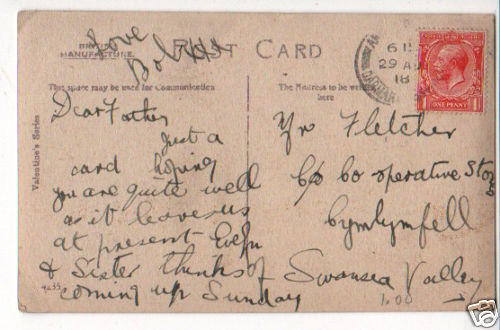 Love
Bob xxx
BRITISH
MANUFACTURE.
POST CARD
This space may be used for Communication
The Address to be written
here
Valentine's Series
Dear Father
Just a
card hoping
you are quite well
as it leaves us
at present Evelyn
& Sister thinks of
coming up Sunday
Mr Fletcher
c/o Co operative Stores
Swansea Valley
6 15
29 AU
18
ONE PENNY
1.00